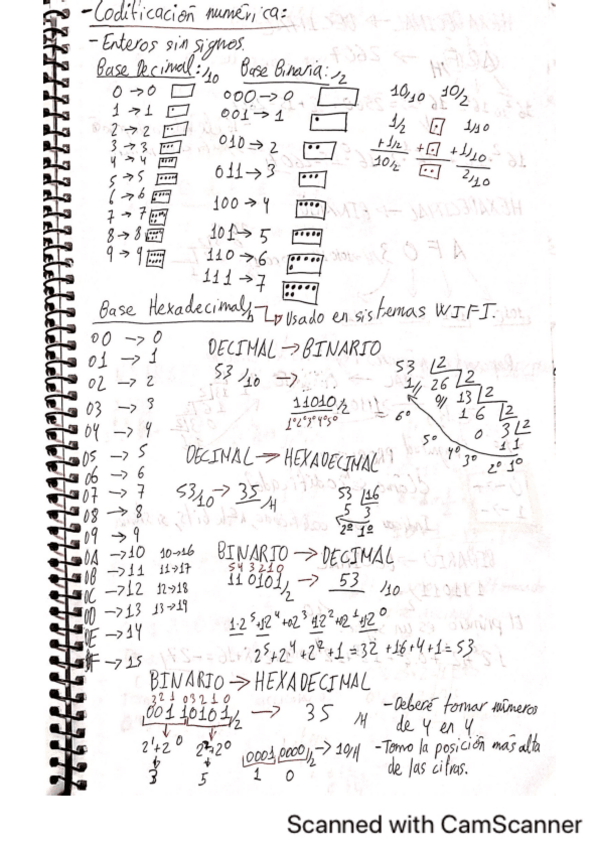 -Codificación numérica:
-Enteros sin signos.
Base Decimal:/10 Base Binaria:/2
0→0 000→0 10/10 10/2
1→1 001→1 1/2 1/10
2→2 010→2 +1/2 +1/10
3→3 011→3 10/2 2/10
4→4 100→4
5→5 101→5
6→6 110→6
7→7 111→7
8→8
9→9
Base Hexadecimal/h → Usado en sistemas WIFI.
00→0
01→1
02→2
03→3
04→4
05→5
06→6
07→7
08→8
09→9
0A→10 10→16
0B→11 11→17
0C→12 12→18
0D→13 13→19
0E→14
0F→15
DECIMAL→BINARIO
53/10→
11010/2
1º2º3º4º5º
53 |2
1 26 |2
0 13 |2
1 6 |2
0 3 |2
1 1
6º 5º 4º 3º 2º 1º
DECIMAL→HEXADECIMAL
53/10→35/H
53 |16
5 3
2º 1º
BINARIO→DECIMAL
5 4 3 2 1 0
110101/2→53/10
1·2⁵+12⁴+02³+12²+02¹+12⁰
2⁵+2⁴+2²+1=32+16+4+1=53
BINARIO→HEXADECIMAL
3 2 1 0 3 2 1 0
00110101/2→35/H
2¹+2⁰ 2²+2⁰
3 5
0001 0000/2→10/H
1 0
-Deberé tomar números
de 4 en 4
-Tomo la posición más alta
de las cifras.
Scanned with CamScanner